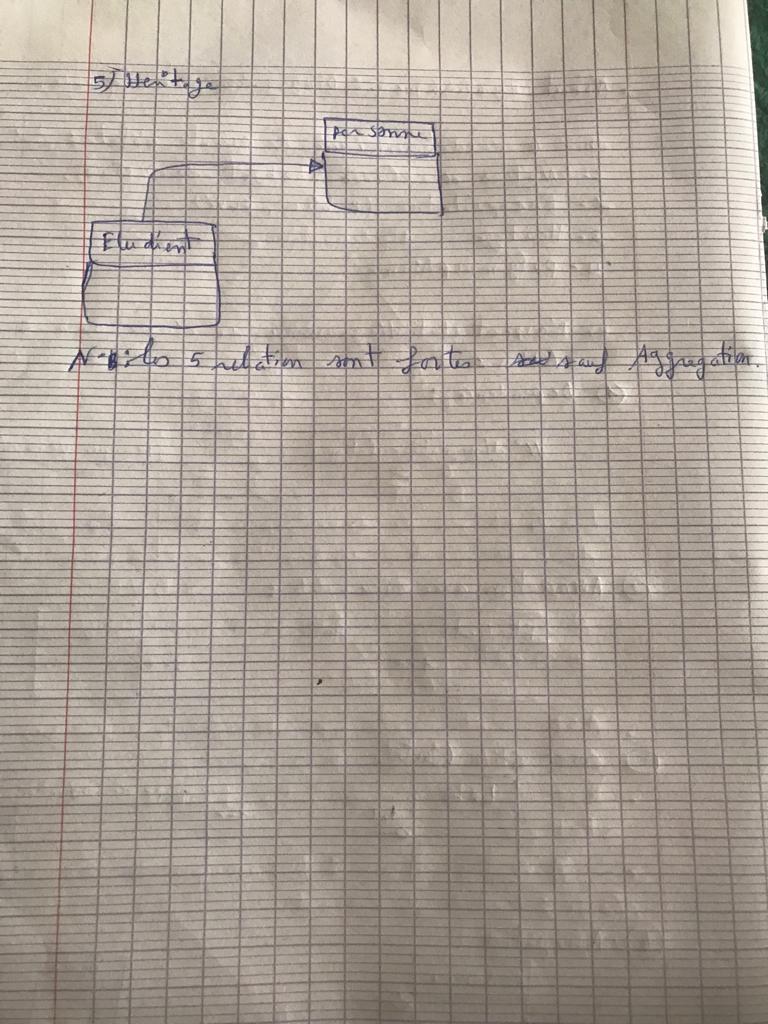 5) Heritage
personne
Etudient
N-B: les 5 relation sont fortes sauf Aggregation.